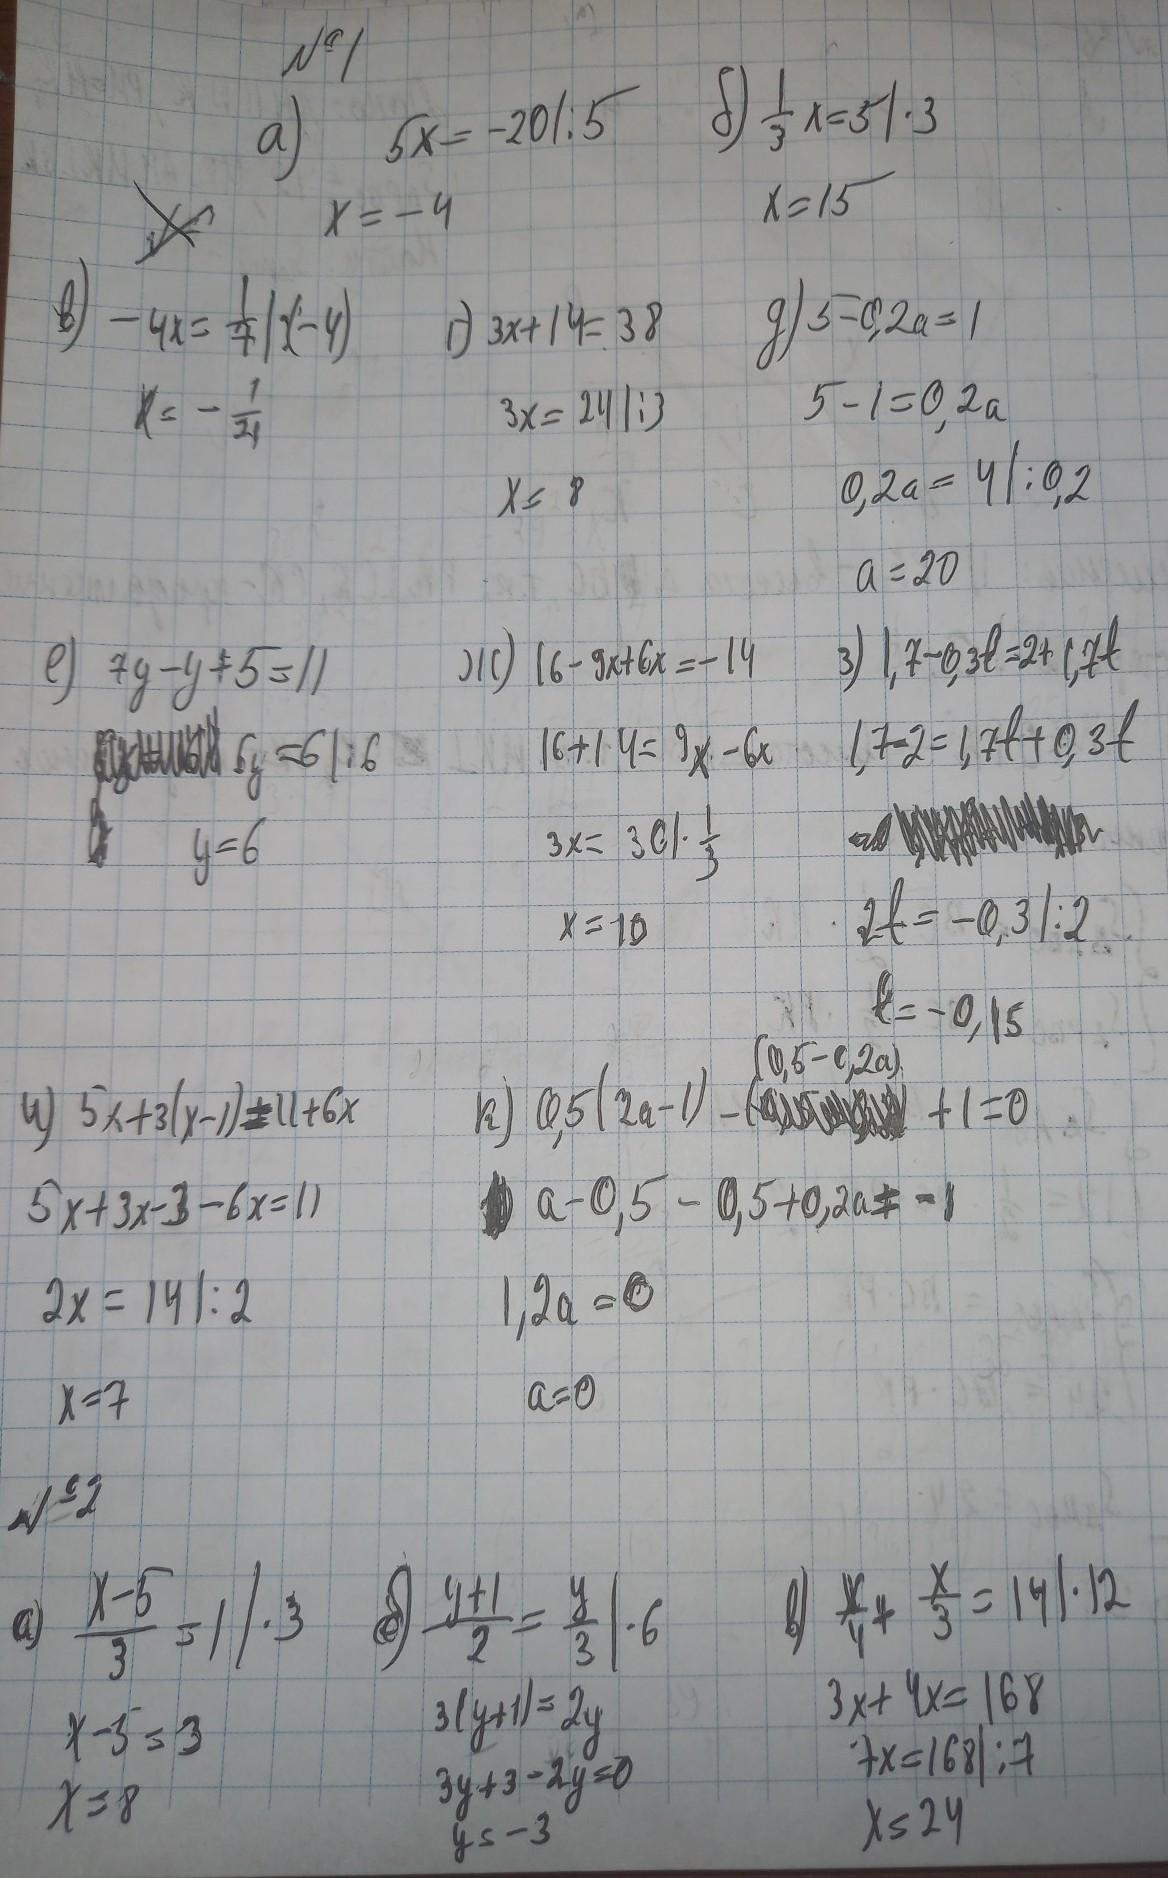 №1
а) 5x = -20 |:5
б) 1/3 x = 5 |·3
x = -4
x = 15
в) -4x = 1/7 | :(-4)
г) 3x+14 = 38
д) 5-0,2a = 1
x = -
3x = 24 |:3
5-1 = 0,2a
x = 8
0,2a = 4 |:0,2
a = 20
е) 7y-y+5 = 11
ж) 16-9x+6x = -14
з) 1,7-0,3t = 2+1,7t
6y = 6 |:6
16+14 = 9x-6x
1,7-2 = 1,7t+0,3t
y = 6
3x = 30 |· 1/3
x = 10
2t = -0,3 |:2
t = -0,15
и) 5x+3(x-1) = 11+6x
к) 0,5(2a-1) - (0,5-0,2a) + 1 = 0
5x+3x-3-6x = 11
a-0,5-0,5+0,2a = -1
2x = 14 |:2
1,2a = 0
x = 7
a = 0
№2
а) (x-5)/3 = 1 |·3
б) (y+1)/2 = y/3 |·6
в) x/4 + x/3 = 14 |·12
x-5 = 3
3(y+1) = 2y
3x+4x = 168
x = 8
3y+3-2y = 0
7x = 168 |:7
y = -3
x = 24